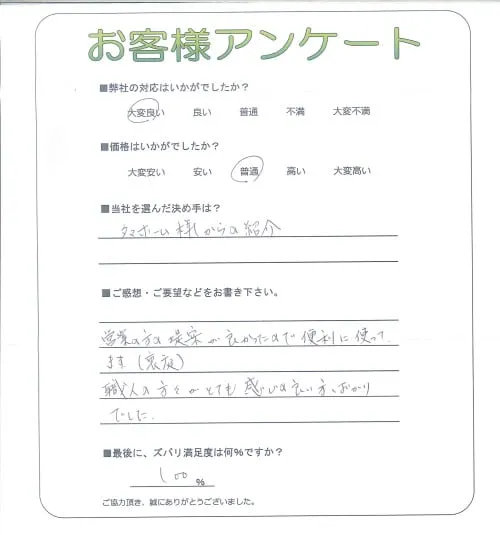 お客様アンケート
■弊社の対応はいかがでしたか？
大変良い 良い 普通 不満 大変不満
■価格はいかがでしたか？
大変安い 安い 普通 高い 大変高い
■当社を選んだ決め手は？
タマホーム様からの紹介
■ご感想・ご要望などをお書き下さい。
営業の方の提案が良かったので便利に使って
ます（裏庭）
職人の方々がとても感じの良い方ばかり
でした.
■最後に、ズバリ満足度は何％ですか？
100 %
ご協力頂き、誠にありがとうございました。